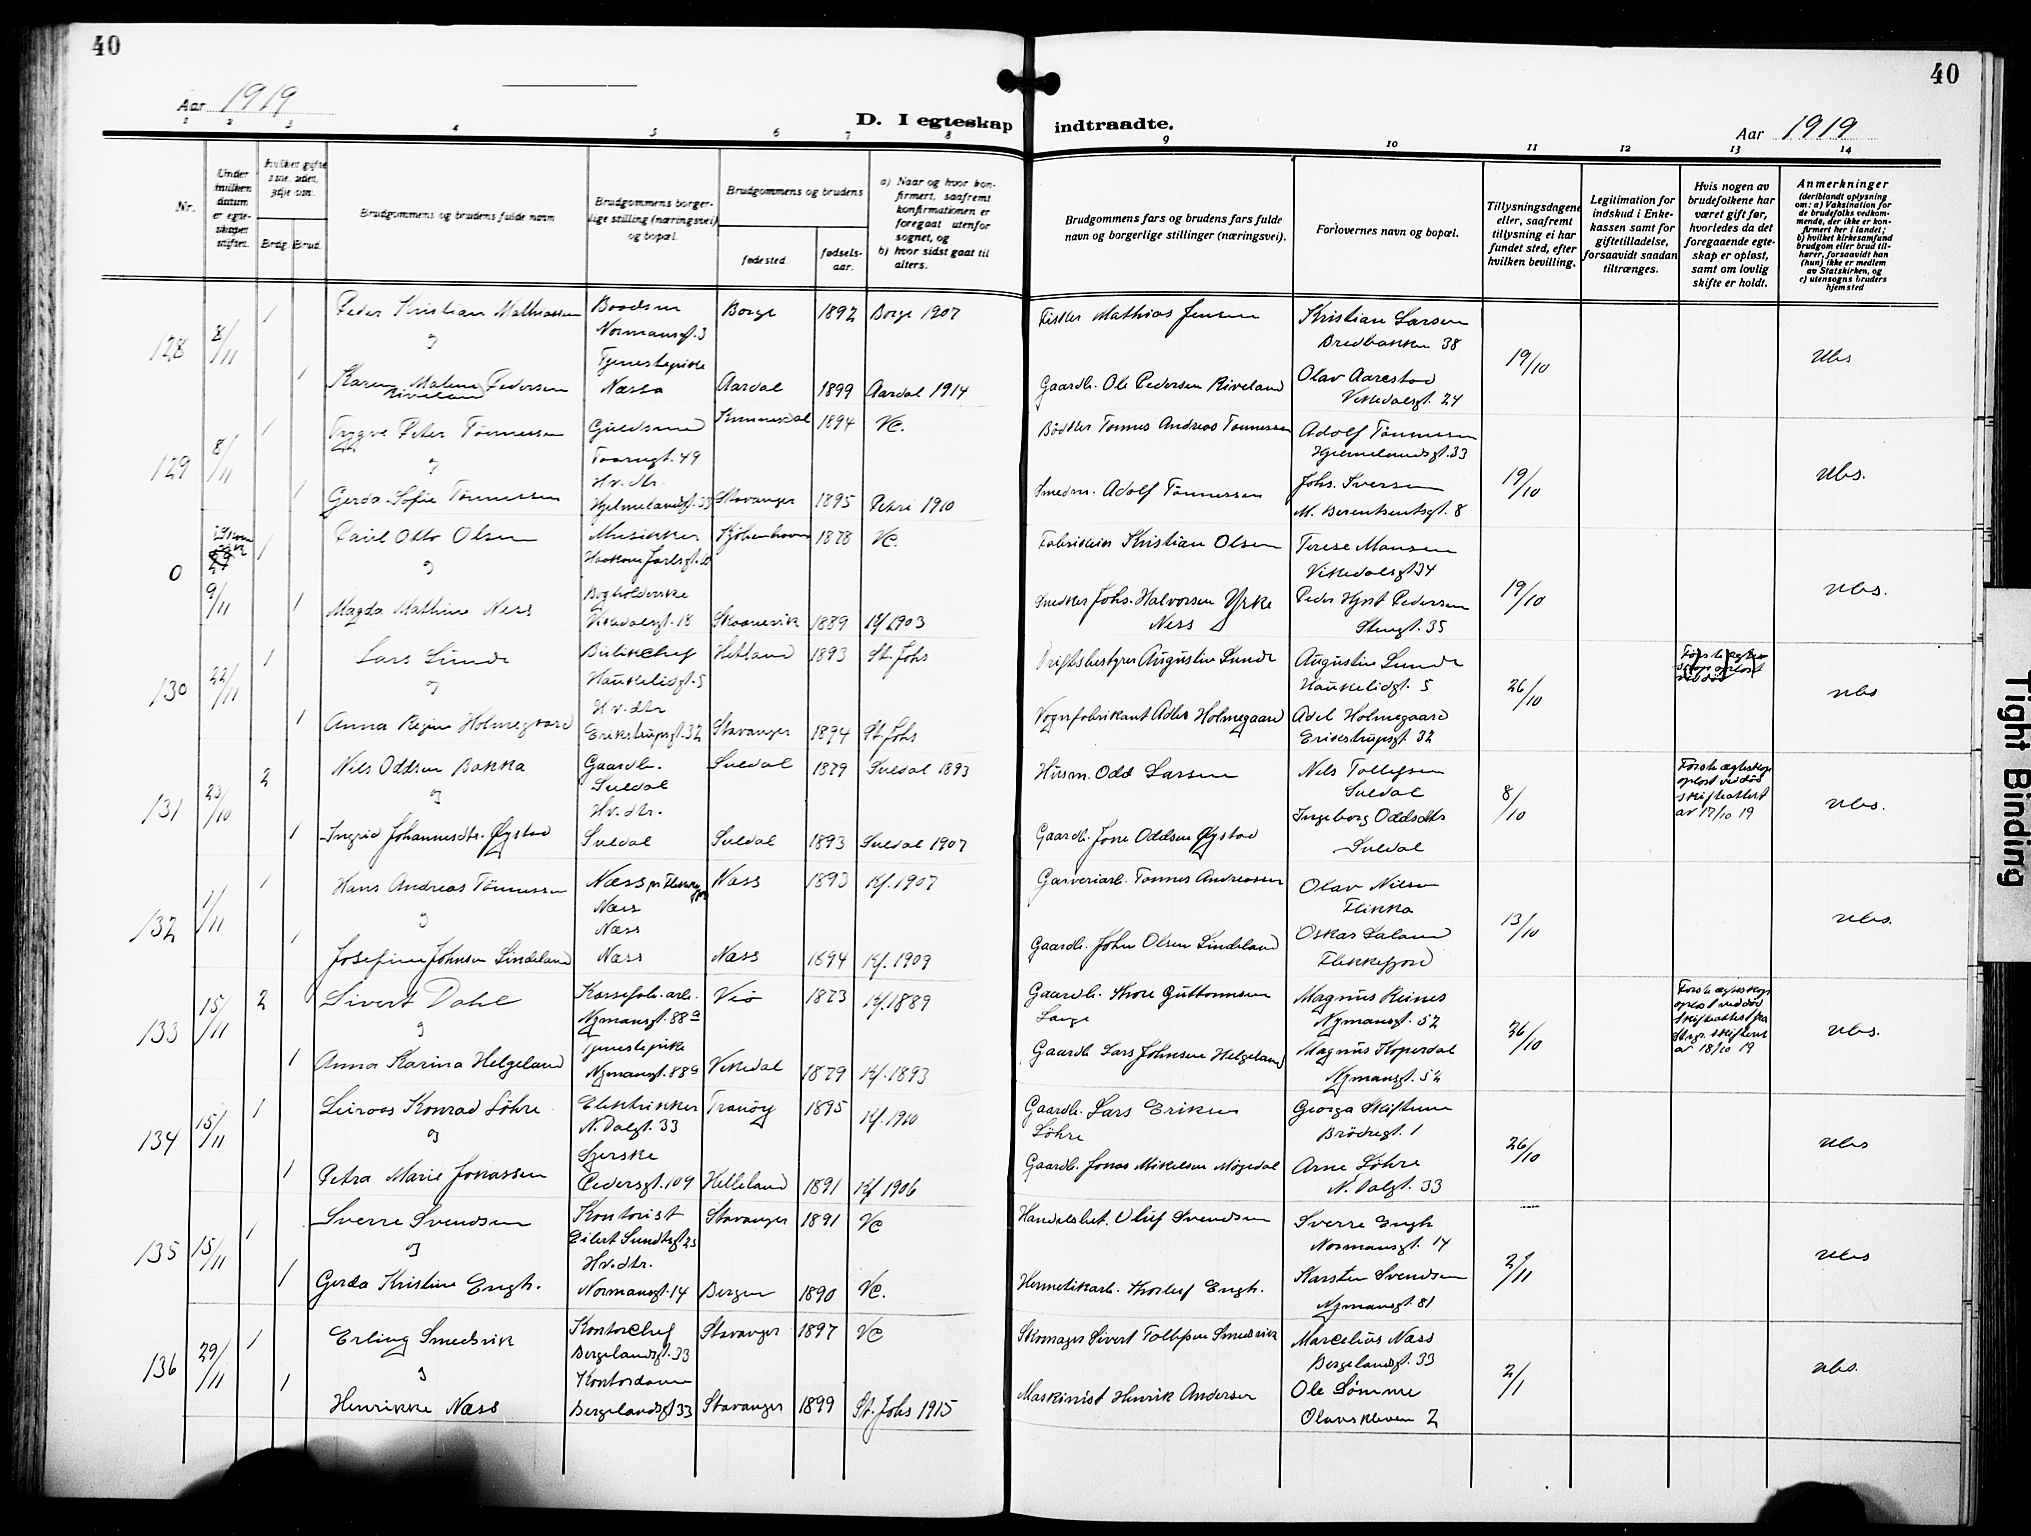 40
40
Aar 1919
D. I egteskap indtraadte.
Aar 1919
1 2 3 4 5 6 7 8 9 10 11 12 13 14
Nr.
Under hvilken datum er egteskapet stiftet.
Brdg. Brud.
Brudgommens og brudens fulde navn
Brudgommens borgerlige stilling (næringsvei) og bopæl.
Brudgommens og brudens
fødested.
fødselsaar.
a) Naar og hvor konfirmert, saafremt konfirmationen er foregaat utenfor sognet, og
b) hvor sidst gaat til alters.
Brudgommens fars og brudens fars fulde navn og borgerlige stillinger (næringsvei).
Forlovernes navn og bopæl.
Tillysningsdagene eller, saafremt tillysning ei har fundet sted, efter hvilken bevilling.
Legitimation for indskud i Enkekassen samt for giftetilladelse, forsaavidt saadan tiltrænges.
Hvis nogen av brudefolkene har været gift før, hvorledes da det foregaaende egteskap er opløst, samt om lovlig skifte er holdt.
Anmerkninger
(deriblandt oplysning om: a) Vaksination for de brudefolks vedkommende, der ikke er konfirmert her i landet;
b) hvilket kirkesamfund brudgom eller brud tilhører, forsaavidt han (hun) ikke er medlem av Statskirken, og
c) utensogns bruders hjemsted
128 8/11 1 Peder Kristian Mathiassen Baadsm Normansgt. 3 Borge 1892 Borge 1907 Fisker Mathias Jensen Kristian Larsen Bredbakken 38 19/10 Ubs
og
1 Karen Malene Pedersen Riveland Tjenestepike Næsla Aardal 1899 Aardal 1914 Gaardb. Ole Pedersen Riveland Olav Aarestad Vikedalsgt. 24
129 8/11 1 Trygve Peter Tönnessen Guldsmed 49 1894 Vc. Bödker Tønnes Andreas Tønnessen Adolf Tönnessen Hjelmelandsgt. 33 19/10 Ubs.
og
1 Gerda Sofie Tönnessen Hv. dtr. Hjelmelandsgt. 33 Stavanger 1895 Petri 1910 Smedm. Adolf Tönnessen Johs. Iversen M. Berentsentsgt. 8
0 9/11 1 Paul Otto Olsen Musikker Haakon Jarlsgt. Kjöbenhavn 1878 Vc. Kristian Olsen Terese Monsen Vikedalsgt 34 19/10 Ubs.
og
1 Magda Mathine Ness Bogholderske Vikedalsgt. 18 Skaanevik 1889 Kf 1903 Snedker Johs. Halvorsen Yrke Ness Peder Hjort Pedersen Stengt. 35
130 22/11 1 Lars Sunde Haukeligt. 5 Hetland 1893 St. Johs Driftsbestyrer Augustin Sunde Augustin Sunde Haukelidgt. 5 26/10 Ubs
og
1 Anna Regine Holmegaard Hv. dtr Erikstrupsgt. 32 Stavanger 1894 St. Johs Vognfabrikant Adler Holmegaard Adel Holmegaard Erikstrupsgt 32
131 23/10 2 Nils Oddsen Bakka Gaardb. Suldal Suldal 1879 Suldal 1893 Husm. Odd Larsen Nils Tollefsen Suldal 8/10 Förste ægteskap oplöst ved död skifteattest av 17/10 19 Ubs.
og
1 Ingrid Johannesdtr. Øystad Hv. dtr. Suldal Suldal 1893 Suldal 1907 Gaardb. Jone Oddsen Øystad Ingeborg Oddsdtr Suldal
132 1/11 1 Hans Andreas Tönnessen Næss pr Flekkefjord Næss Næss 1893 Kf. 1907 Garveriarb. Tønnes Andreassen Olav Nilsen Flikka 13/10 Ubs.
og
1 Josefine Johnsen Lindeland Næss Næss Næss 1894 Kf. 1909 Gaardb. John Olsen Lindeland Oskar Faland Flekkefjord
133 15/11 2 Sivert Dahl Nymansgt. 88a Viö 1873 Kf. 1889 Gaardb. Thore Guttormsen Lange Magnus Reines Nymansgt. 52 26/10 Förste ægteskap oplöst ved död skifteattest fra Stvgr. skifteret av 18/10 19 Ubs.
og
1 Anna Karina Helgeland Tjenestepike Nymansgt. 88a Vikedal 1879 Kf. 1893 Gaardb. Lars Johnsen Helgeland Magnus Koperdal Nymansgt. 52
134 15/11 1 Konrad Löhre Elektrikker N. Dalgt. 33 Tranöy 1895 Kf. 1910 Gaardb. Lars Eriksen Löhre Georga Brödregt. 1 26/10 Ubs
og
1 Petra Marie Jonassen Syerske Pedersgt. 109 Helleland 1891 Kf 1906 Gaardb. Jonas Mikelsen Mögedal Arne Löhre N. Dalgt. 33
135 15/11 1 Sverre Svendsen Kontorist Eilert Sundtsgt 25 Stavanger 1891 Vc Handelsbet. Oluf Svendsen Sverre Engh Normansgt. 14 2/11 Ubs
og
1 Gerda Kristine Engh. Hv. dtr. Normansgt. 14 Bergen 1890 Vc. Hermetikarb. Thorleif Engh. Karsten Svendsen Nymansgt. 81
136 29/11 1 Erling Smedsvik Kontorchef Bergelandsgt. 33 Stavanger 1897 Vc Skomager Sivert Tollefsen Smedsvik Marcelius Næss Bergelandsgt. 33 2/1 Ubs.
og
1 Henrikke Næss Kontordame Bergelandsgt 33 Stavanger 1899 St. Johs 1915 Maskinist Henrik Andersen Ole Sømme Olavskleven 2
Tight Binding